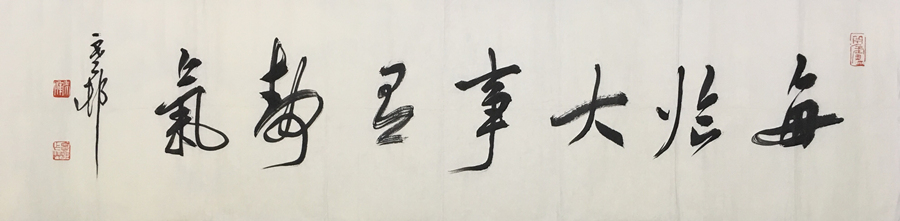 每临大事有静氣